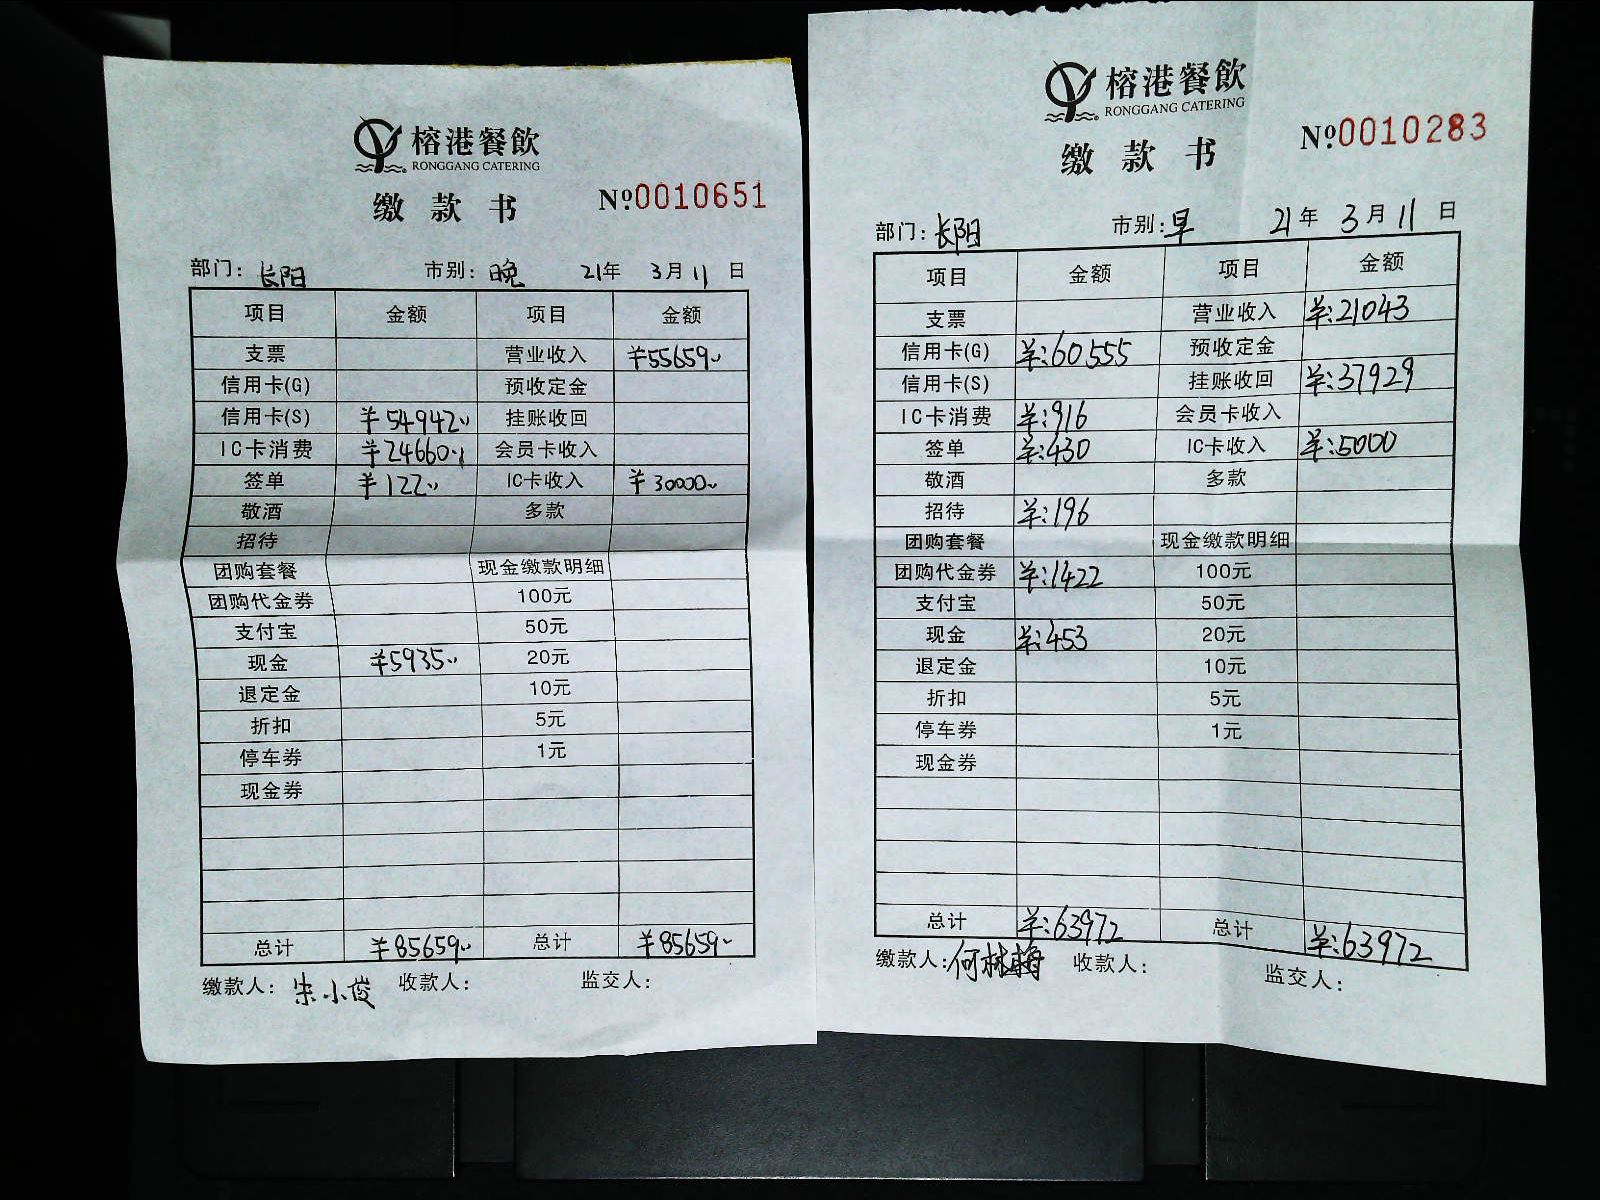 榕港餐飲
RONGGANG CATERING
缴款书
№0010651
部门：长阳 市别：晚 21年 3月11日
项目 金额 项目 金额
支票 营业收入 ¥55659
信用卡(G) 预收定金
信用卡(S) ¥54942 挂账收回
IC卡消费 ¥24660 会员卡收入
签单 ¥122 IC卡收入 ¥30000
敬酒 多款
招待
团购套餐 现金缴款明细
团购代金券 100元
支付宝 50元
现金 ¥5935 20元
退定金 10元
折扣 5元
停车券 1元
现金券
总计 ¥85659 总计 ¥85659
缴款人：朱小俊 收款人： 监交人：
榕港餐飲
RONGGANG CATERING
缴款书
№0010283
部门：长阳 市别：早 21年 3月11日
项目 金额 项目 金额
支票 营业收入 ¥:21043
信用卡(G) ¥:60555 预收定金
信用卡(S) 挂账收回 ¥:37929
IC卡消费 ¥:916 会员卡收入
签单 ¥:430 IC卡收入 ¥:5000
敬酒 多款
招待 ¥:196
团购套餐 现金缴款明细
团购代金券 ¥:1422 100元
支付宝 50元
现金 ¥:453 20元
退定金 10元
折扣 5元
停车券 1元
现金券
总计 ¥:63972 总计 ¥:63972
缴款人：何林梅 收款人： 监交人：